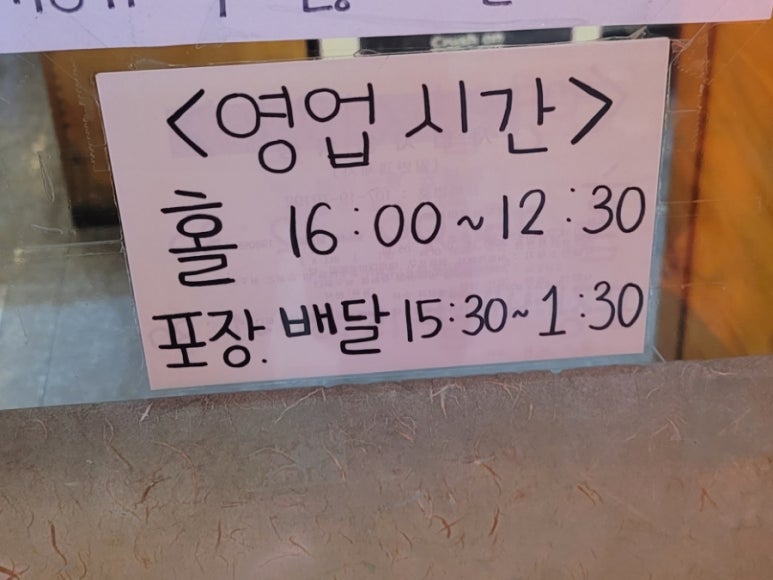 <영업 시간>
홀 16:00~12:30
포장. 배달 15:30~1:30